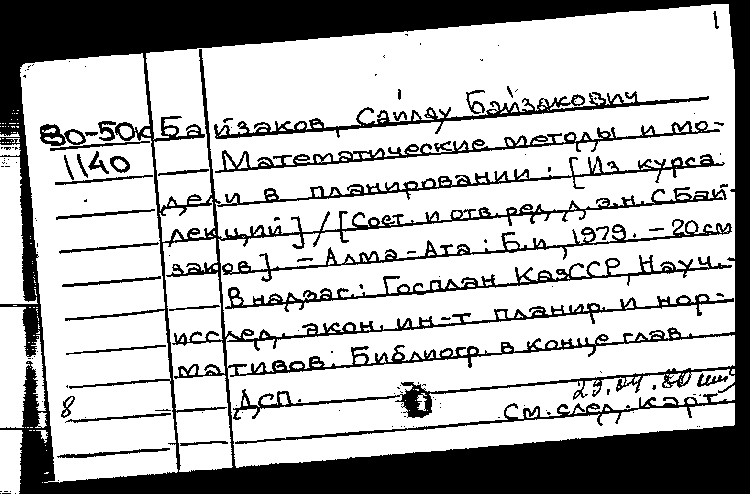 1
80-50к Байзаков, Сайлау Байзакович
1140 Математические методы и мо-
дели в планировании: [Из курса
лекций] / [Сост. и отв. ред. д.э.н. С. Бай-
заков]. - Алма-Ата: Б.и., 1979. - 20 см
В надзаг.: Госплан КазССР, Науч.-
исслед. экон. ин-т планир. и нор-
мативов. Библиогр. в конце глав.
8 Дсп. 29.04.80
См. след. карт.